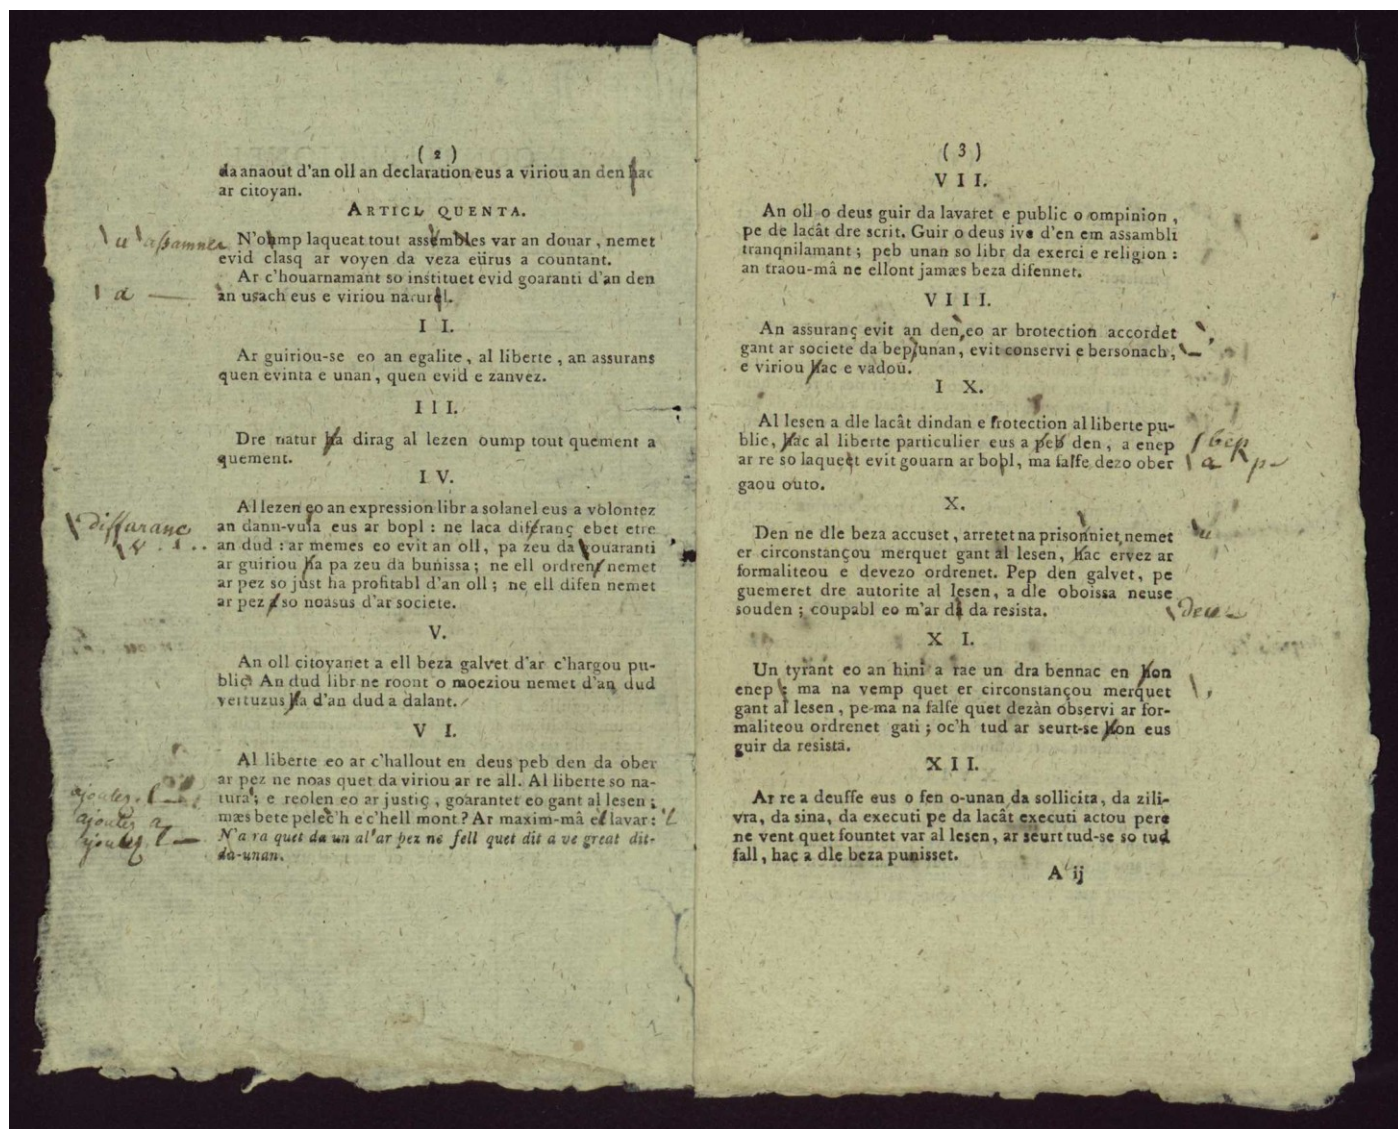 ( 2 )
da anaout d'an oll an declaration eus a viriou an den hac
ar citoyan.
ARTICL QUENTA.
N'oump laqueat tout assembles var an douar, nemet
evid clasq ar voyen da veza eürus a countant.
Ar c'houarnamant so instituet evid goaranti d'an den
an usach eus e viriou naturel.
I I.
Ar guiriou-se eo an egalite, al liberte, an assurans
quen evinta e unan, quen evid e zanvez.
I I I.
Dre natur ha dirag al lezen oump tout quement a
quement.
I V.
Al lezen eo an expression libr a solanel eus a volontez
an dann-vuia eus ar bopl : ne laca diferanç ebet etre
an dud : ar memes eo evit an oll, pa zeu da gouaranti
ar guiriou ha pa zeu da bunissa; ne ell ordren nemet
ar pez so just ha profitabl d'an oll; ne ell difen nemet
ar pez a so noasus d'ar societe.
V.
An oll citoyanet a ell beza galvet d'ar c'hargou pu-
blic. An dud libr ne roont o moeziou nemet d'an dud
vertuzus ha d'an dud a dalant.
V I.
Al liberte eo ar c'hallout en deus peb den da ober
ar pez ne noas quet da viriou ar re all. Al liberte so na-
tura; e reolen eo ar justiç, goarantet eo gant al lesen;
mæs bete pelec'h e c'hell mont? Ar maxim-mâ el lavar:
N'a ra quet da un al'ar pez ne fell quet dit a ve great dit-
da-unan.
u assamnes
a
diffuranc
ajoutez l
ajoutez a
ajoutez l
( 3 )
V I I.
An oll o deus guir da lavaret e public o ompinion,
pe de lacât dre scrit. Guir o deus ive d'en em assambli
tranqnilamant; peb unan so libr da exerci e religion:
an traou-mâ ne ellont jamæs beza difennet.
V I I I.
An assuranç evit an den, eo ar brotection accordet
gant ar societe da bep unan, evit conservi e bersonach,
e viriou hac e vadou.
I X.
Al lesen a dle lacât dindan e frotection al liberte pu-
blic, hac al liberte particulier eus a peb den, a enep
ar re so laqueet evit gouarn ar bopl, ma falfe dezo ober
gaou outo.
X.
Den ne dle beza accuset, arretet na prisonniet nemet
er circonstançou merquet gant al lesen, hac ervez ar
formaliteou e devezo ordrenet. Pep den galvet, pe
guemeret dre autorite al lesen, a dle oboissa neuse
souden; coupabl eo m'ar da da resista.
X I.
Un tyrant eo an hini a rae un dra bennac en hon
enep; ma na vemp quet er circonstançou merquet
gant al lesen, pe-ma na falfe quet dezàn observi ar for-
maliteou ordrenet gati; oc'h tud ar seurt-se hon eus
guir da resista.
X I I.
Ar re a deuffe eus o fen o-unan da sollicita, da zili-
vra, da sina, da executi pe da lacât executi actou pere
ne vent quet fountet var al lesen, ar seurt tud-se so tud
fall, hac a dle beza punisset.
A ij
bep
a p
u
deu